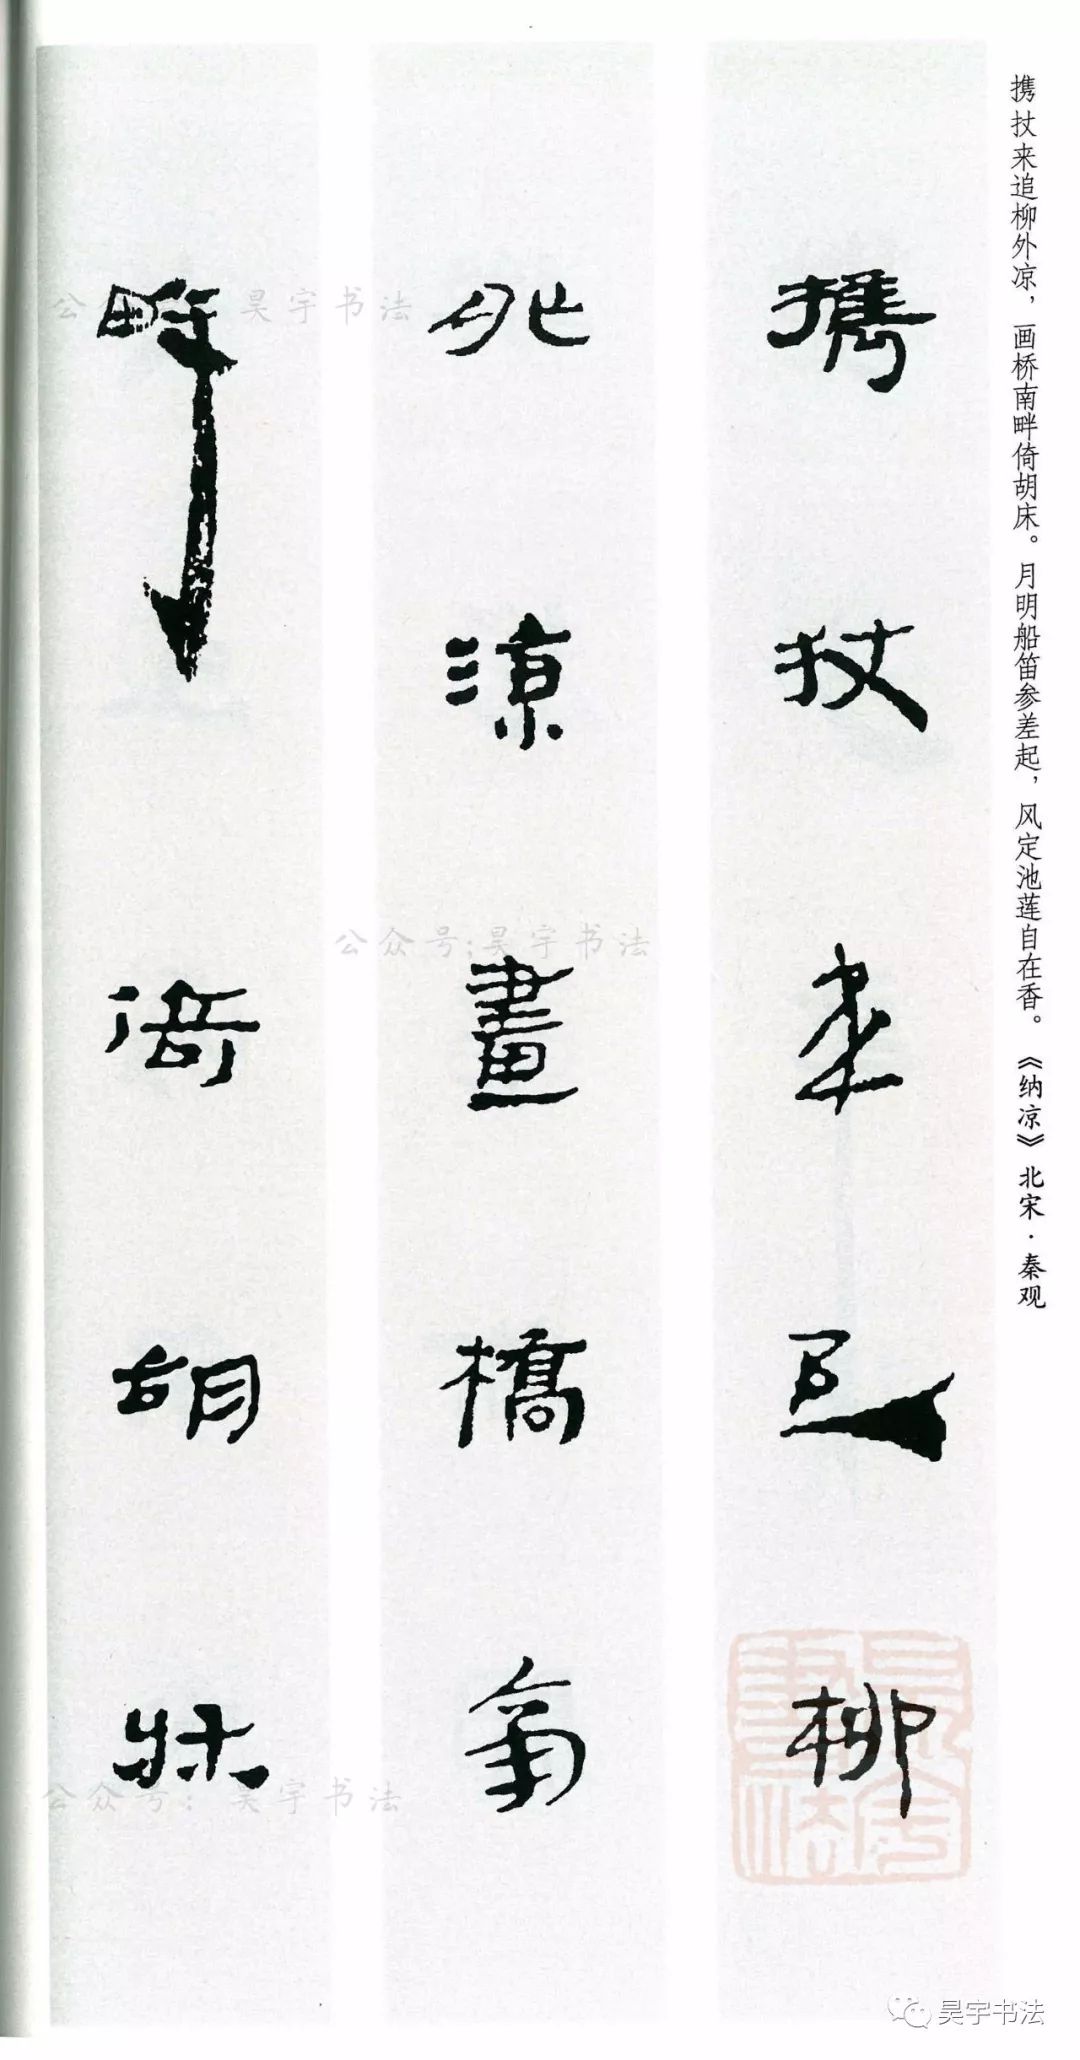 携杖来追柳外凉，画桥南畔倚胡床。月明船笛参差起，风定池莲自在香。《纳凉》北宋·秦观
攜杖来追柳
外涼畫橋南
畔倚胡牀
公众号:昊宇书法
公众号:昊宇书法
公众号:昊宇书法
昊宇书法